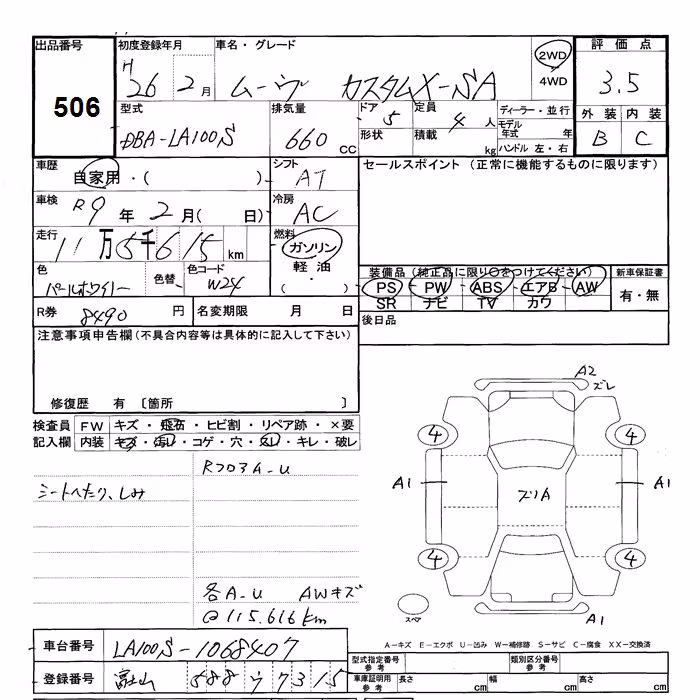 出品番号 初度登録年月 車名・グレード 評価点
506 H 26 2月 ムーヴ カスタムX-SA 2WD 4WD 3.5
型式 排気量 ドア 5 定員 4人 ディーラー・並行 外装 内装
DBA-LA100S 660cc 形状 積載 kg モデル年式 年 ハンドル 左・右 B C
車歴 自家用・( ) シフト AT セールスポイント (正常に機能するものに限ります)
車検 R9年2月( 日) 冷房 AC
走行 11万5千615km 燃料 ガソリン 軽油・( )
色 パールホワイト 色替 色コード W24 装備品(純正品に限り○をつけてください) 新車保証書
PS PW ABS エアB AW 有・無
SR ナビ TV カワ
R券 8490円 名変期限 月 日 後日品
注意事項申告欄(不具合内容等は具体的に記入して下さい)
修復歴 有 〔箇所 〕
検査員 FW キズ・飛石・ヒビ割・リペア跡・×要
記入欄 内装 キズ・汚れ・コゲ・穴・スレ・キレ・破レ
シートへたり、しみ
各A-U AWキズ
@115.616km
A2 ズレ
4 4
A1 A1
4 4
スペア A1
A-キズ E-エクボ U-凹み W-補修跡 S-サビ C-腐食 XX-交換済
車台番号 LA100S-1068407 型式指定番号 参考 類別区分番号 参考
登録番号 富山 588 7315 車庫証明用 参考 長さ cm 幅 cm 高さ cm